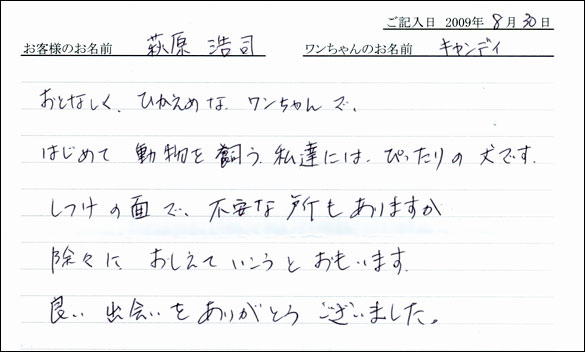 ご記入日 2009年 8月 30日
お客様のお名前 萩原 浩司 ワンちゃんのお名前 キャンディ
おとなしく、ひかえめな ワンちゃんで、
はじめて 動物を 飼う 私達には、ぴったりの 犬です.
しつけの面で、不安な所もありますが
除々に おしえて いこうと おもいます.
良い 出会いを ありがとう ございました。